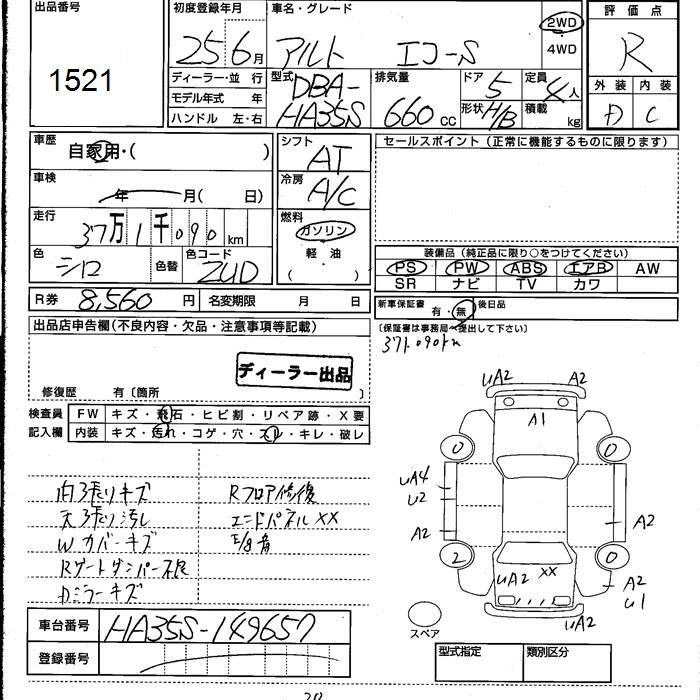 出品番号 初度登録年月 車名・グレード 2WD 評価点
1521 25 6月 アルト エコ-S 4WD R
ディーラー・並行 型式 排気量 ドア 定員 外装 内装
モデル年式 年 DBA- 5 4人
ハンドル 左・右 HA35S 660cc 形状 H/B 積載 kg D C
車歴 自家用・( ) シフト AT セールスポイント(正常に機能するものに限ります)
車検 年 月( 日) 冷房 A/C
走行 37万1千090km 燃料 ガソリン
軽油
( ・ )
色 シロ 色替 色コード ZUD 装備品(純正品に限り○をつけてください)
PS PW ABS エアB AW
SR ナビ TV カワ
R券 8,560円 名変期限 月 日 新車保証書 有・無 後日品
出品店申告欄(不良内容・欠品・注意事項等記載) 〔保証書は事務局へ提出して下さい〕
371,090km
ディーラー出品
修復歴 有〔箇所 〕
検査員 FW キズ・飛石・ヒビ割・リペア跡・X要
記入欄 内装 キズ・汚れ・コゲ・穴・スレ・キレ・破レ
内張りキズ Rフロア修復
天張り汚れ エンドパネルXX
Wカバーキズ E/g音
Rゲートダンパー不良
Dミラーキズ
uA2 A2
A1
0 0
uA4
u2
A2 A2
2 0
uA2 XX A2
u1
uA2
スペア
車台番号 HA35S-149657
登録番号
型式指定 類別区分